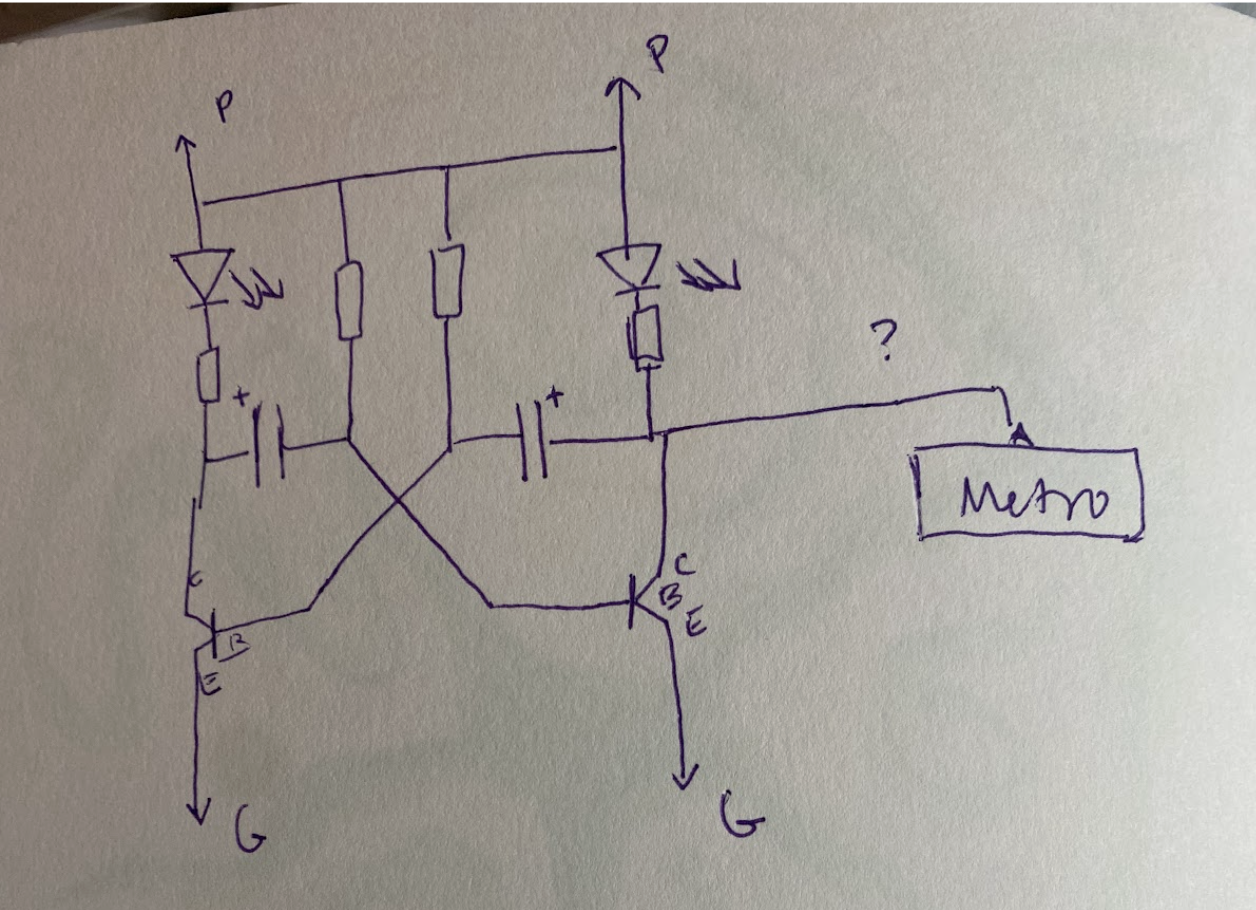 P
P
?
+
+
Metro
C
B
E
C
B
E
G
G